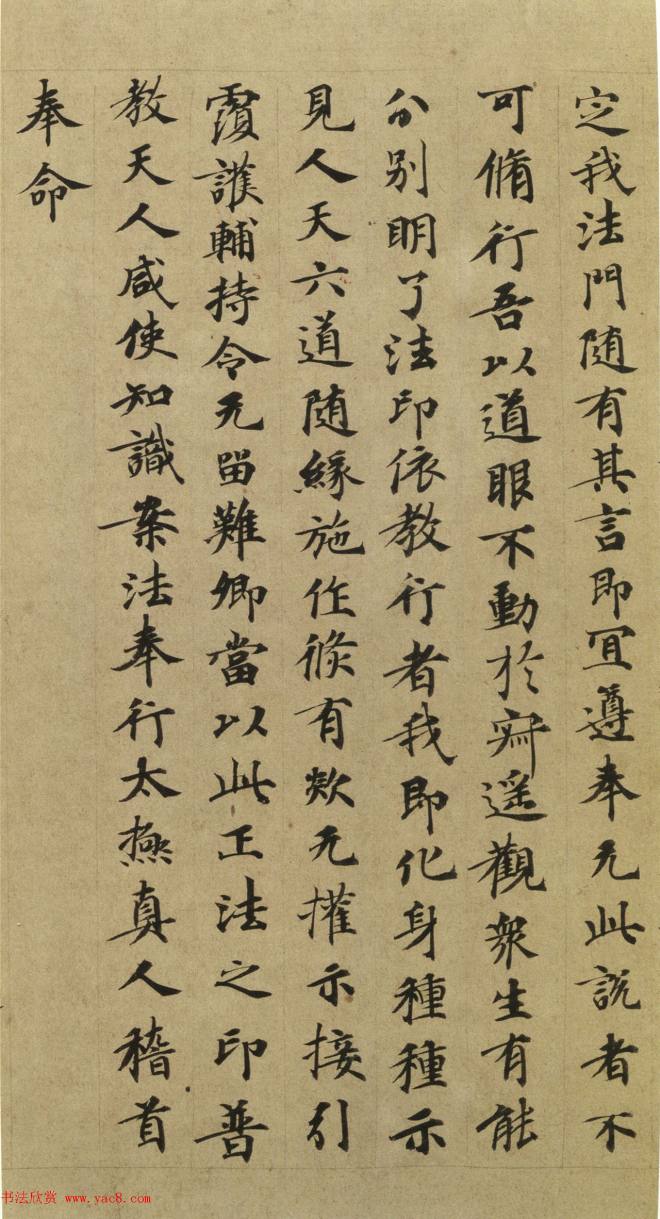 定我法門随有其言即宜遵奉无此説者不
可脩行吾以道眼不動於寂遥觀衆生有能
分别明了法印依教行者我即化身種種示
見人天六道随緣施作倏有欻无權示接引
覆護輔持令无留難卿當以此正法之印普
教天人咸使知識案法奉行太極真人稽首
奉命
书法欣赏 www.yac8.com